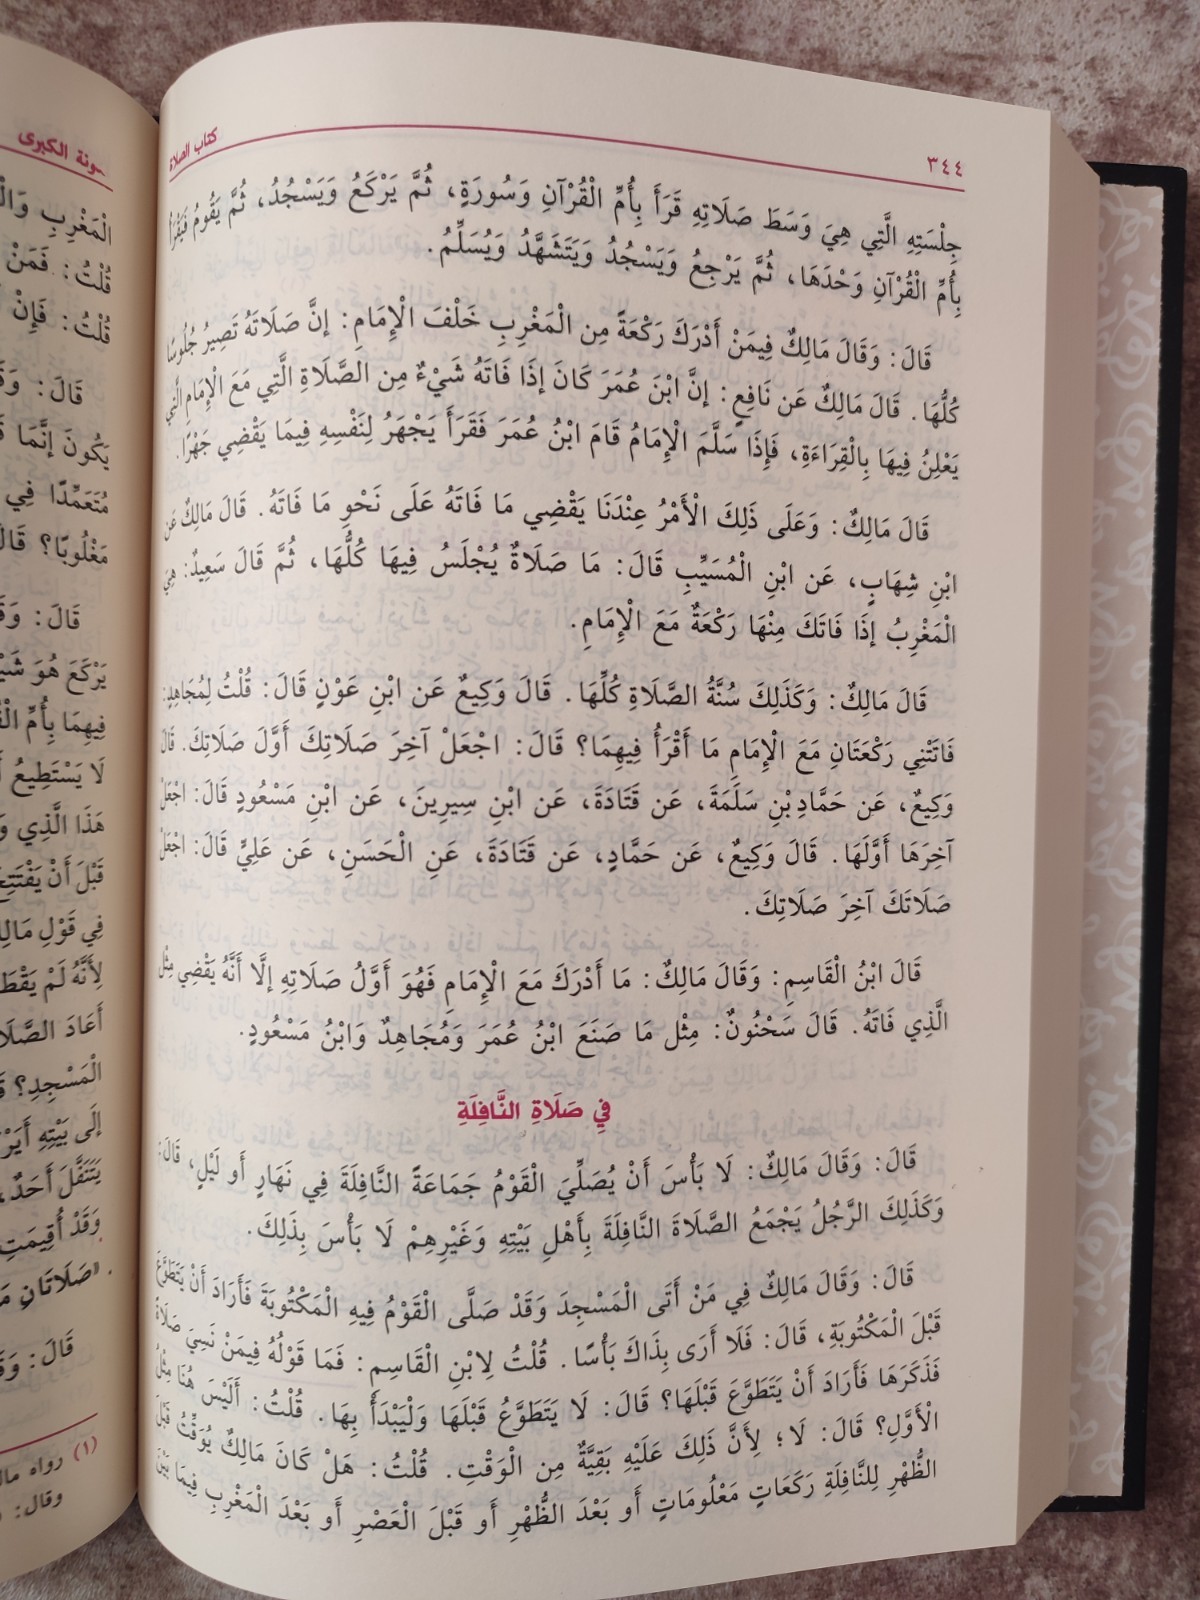 ٣٤٤
كتاب الصلاة
جِلْسَتِهِ الَّتِي هِيَ وَسَطَ صَلَاتِهِ قَرَأَ بِأُمِّ الْقُرْآنِ وَسُورَةٍ، ثُمَّ يَرْكَعُ وَيَسْجُدُ، ثُمَّ يَقُومُ فَيَقْرَأُ
بِأُمِّ الْقُرْآنِ وَحْدَهَا، ثُمَّ يَرْجِعُ وَيَسْجُدُ وَيَتَشَهَّدُ وَيُسَلِّمُ.
قَالَ: وَقَالَ مَالِكٌ فِيمَنْ أَدْرَكَ رَكْعَةً مِن الْمَغْرِبِ خَلْفَ الْإِمَامِ: إنَّ صَلَاتَهُ تَصِيرُ جُلُوسًا
كُلُّهَا. قَالَ مَالِكٌ عَن نَافِعٍ: إنَّ ابْنَ عُمَرَ كَانَ إذَا فَاتَهُ شَيْءٌ مِن الصَّلَاةِ الَّتِي مَعَ الْإِمَامِ الَّتِي
يَعْلِنُ فِيهَا بِالْقِرَاءَةِ، فَإِذَا سَلَّمَ الْإِمَامُ قَامَ ابْنُ عُمَرَ فَقَرَأَ يَجْهَرُ لِنَفْسِهِ فِيمَا يَقْضِي جَهْرًا.
قَالَ مَالِكٌ: وَعَلَى ذَلِكَ الْأَمْرُ عِنْدَنَا يَقْضِي مَا فَاتَهُ عَلَى نَحْوِ مَا فَاتَهُ. قَالَ مَالِكٌ عَن
ابْنِ شِهَابٍ، عَن ابْنِ الْمُسَيِّبِ قَالَ: مَا صَلَاةٌ يُجْلَسُ فِيهَا كُلُّهَا، ثُمَّ قَالَ سَعِيدٌ: هِيَ
الْمَغْرِبُ إذَا فَاتَكَ مِنْهَا رَكْعَةٌ مَعَ الْإِمَامِ.
قَالَ مَالِكٌ: وَكَذَلِكَ سُنَّةُ الصَّلَاةِ كُلِّهَا. قَالَ وَكِيعٌ عَن ابْنِ عَوْنٍ قَالَ: قُلْتُ لِمُجَاهِدٍ:
فَاتَتْنِي رَكْعَتَانِ مَعَ الْإِمَامِ مَا أَقْرَأُ فِيهِمَا؟ قَالَ: اجْعَلْ آخِرَ صَلَاتِكَ أَوَّلَ صَلَاتِكَ. قَالَ
وَكِيعٌ، عَن حَمَّادِ بْنِ سَلَمَةَ، عَن قَتَادَةَ، عَن ابْنِ سِيرِينَ، عَن ابْنِ مَسْعُودٍ قَالَ: اجْعَلْ
آخِرَهَا أَوَّلَهَا. قَالَ وَكِيعٌ، عَن حَمَّادٍ، عَن قَتَادَةَ، عَنِ الْحَسَنِ، عَن عَلِيٍّ قَالَ: اجْعَلْ
صَلَاتَكَ آخِرَ صَلَاتِكَ.
قَالَ ابْنُ الْقَاسِمِ: وَقَالَ مَالِكٌ: مَا أَدْرَكَ مَعَ الْإِمَامِ فَهُوَ أَوَّلُ صَلَاتِهِ إلَّا أَنَّهُ يَقْضِي مِثْل
الَّذِي فَاتَهُ. قَالَ سَحْنُونٌ: مِثْل مَا صَنَعَ ابْنُ عُمَرَ وَمُجَاهِدٌ وَابْنُ مَسْعُودٍ.
فِي صَلَاةِ النَّافِلَةِ
قَالَ: وَقَالَ مَالِكٌ: لَا بَأْسَ أَنْ يُصَلِّيَ الْقَوْمُ جَمَاعَةً النَّافِلَةَ فِي نَهَارٍ أَو لَيْلٍ، قَالَ:
وَكَذَلِكَ الرَّجُلُ يَجْمَعُ الصَّلَاةَ النَّافِلَةَ بِأَهْلِ بَيْتِهِ وَغَيْرِهِمْ لَا بَأْسَ بِذَلِكَ.
قَالَ: وَقَالَ مَالِكٌ فِي مَنْ أَتَى الْمَسْجِدَ وَقَدْ صَلَّى الْقَوْمُ فِيهِ الْمَكْتُوبَةَ فَأَرَادَ أَنْ يَتَطَوَّعَ
قَبْلَ الْمَكْتُوبَةِ، قَالَ: فَلَا أَرَى بِذَاكَ بَأْسًا. قُلْتُ لِابْنِ الْقَاسِمِ: فَمَا قَوْلُهُ فِيمَنْ نَسِيَ صَلَاةً
فَذَكَرَهَا فَأَرَادَ أَنْ يَتَطَوَّعَ قَبْلَهَا؟ قَالَ: لَا يَتَطَوَّعُ قَبْلَهَا وَلْيَبْدَأْ بِهَا. قُلْتُ: أَلَيْسَ هُنَا مِثْلُ
الْأَوَّلِ؟ قَالَ: لَا؛ لِأَنَّ ذَلِكَ عَلَيْهِ بَقِيَّةٌ مِن الْوَقْتِ. قُلْتُ: هَلْ كَانَ مَالِكٌ يُوَقِّتُ قَبْلَ
الظُّهْرِ لِلنَّافِلَةِ رَكَعَاتٍ مَعْلُومَاتٍ أَو بَعْدَ الظُّهْرِ أَو قَبْلَ الْعَصْرِ أَو بَعْدَ الْمَغْرِبِ فِيمَا بَيْنَ
ـونة الكبرى
الْمَغْرِبِ
قُلْتُ: فَمَنْ
قُلْتُ: فَإِنْ
قَالَ:
يَكُونَ إنَّمَا
مُتَعَمِّدًا فِي
مَغْلُوبًا؟ قَالَ
قَالَ:
يَرْكَعَ هُوَ
فِيهِمَا بِأُمِّ
لَا يَسْتَطِيعُ
هَذَا الَّذِي
قَبْلَ أَنْ يَفْتَتِحَ
فِي قَوْلِ
لِأَنَّهُ لَمْ
أَعَادَ
الْمَسْجِدِ؟
إلَى بَيْتِهِ
يَتَنَفَّلَ أَحَدٌ،
وَقَدْ أُقِيمَتِ
«صَلَاتَانِ
قَالَ:
(١) رواه
وقال: